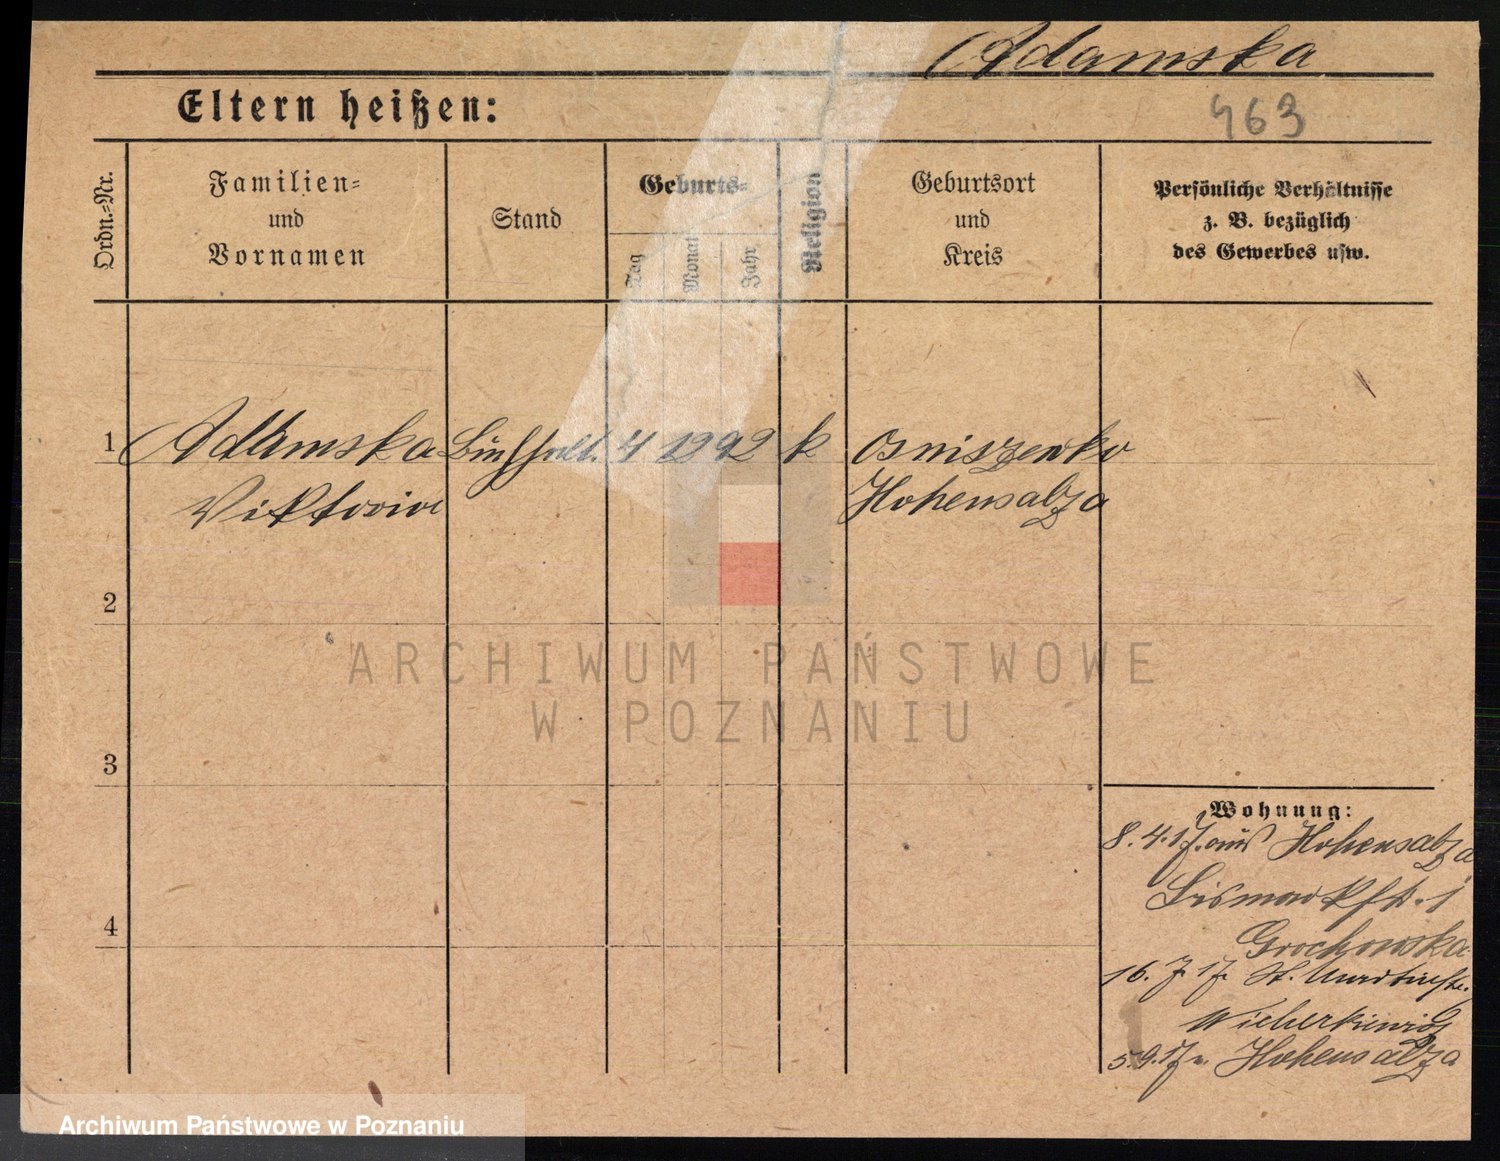 Adamska
463
Eltern heißen:
Ordn.-Nr.
Familien-
und
Vornamen
Stand
Geburts-
Tag
Monat
Jahr
Religion
Geburtsort
und
Kreis
Persönliche Verhältnisse
z. B. bezüglich
des Gewerbes usw.
1 Adamska 4 12 92 k Osniszewko
Viktoria Hohensalza
2
3
4
Wohnung:
8.4.17. aus Hohensalza
Bismarckstr. 1
Grochowska
16. 7. 17. St.
Wicherkiewicz
5.9.17 n. Hohensalza
ARCHIWUM PAŃSTWOWE
W POZNANIU
Archiwum Państwowe w Poznaniu